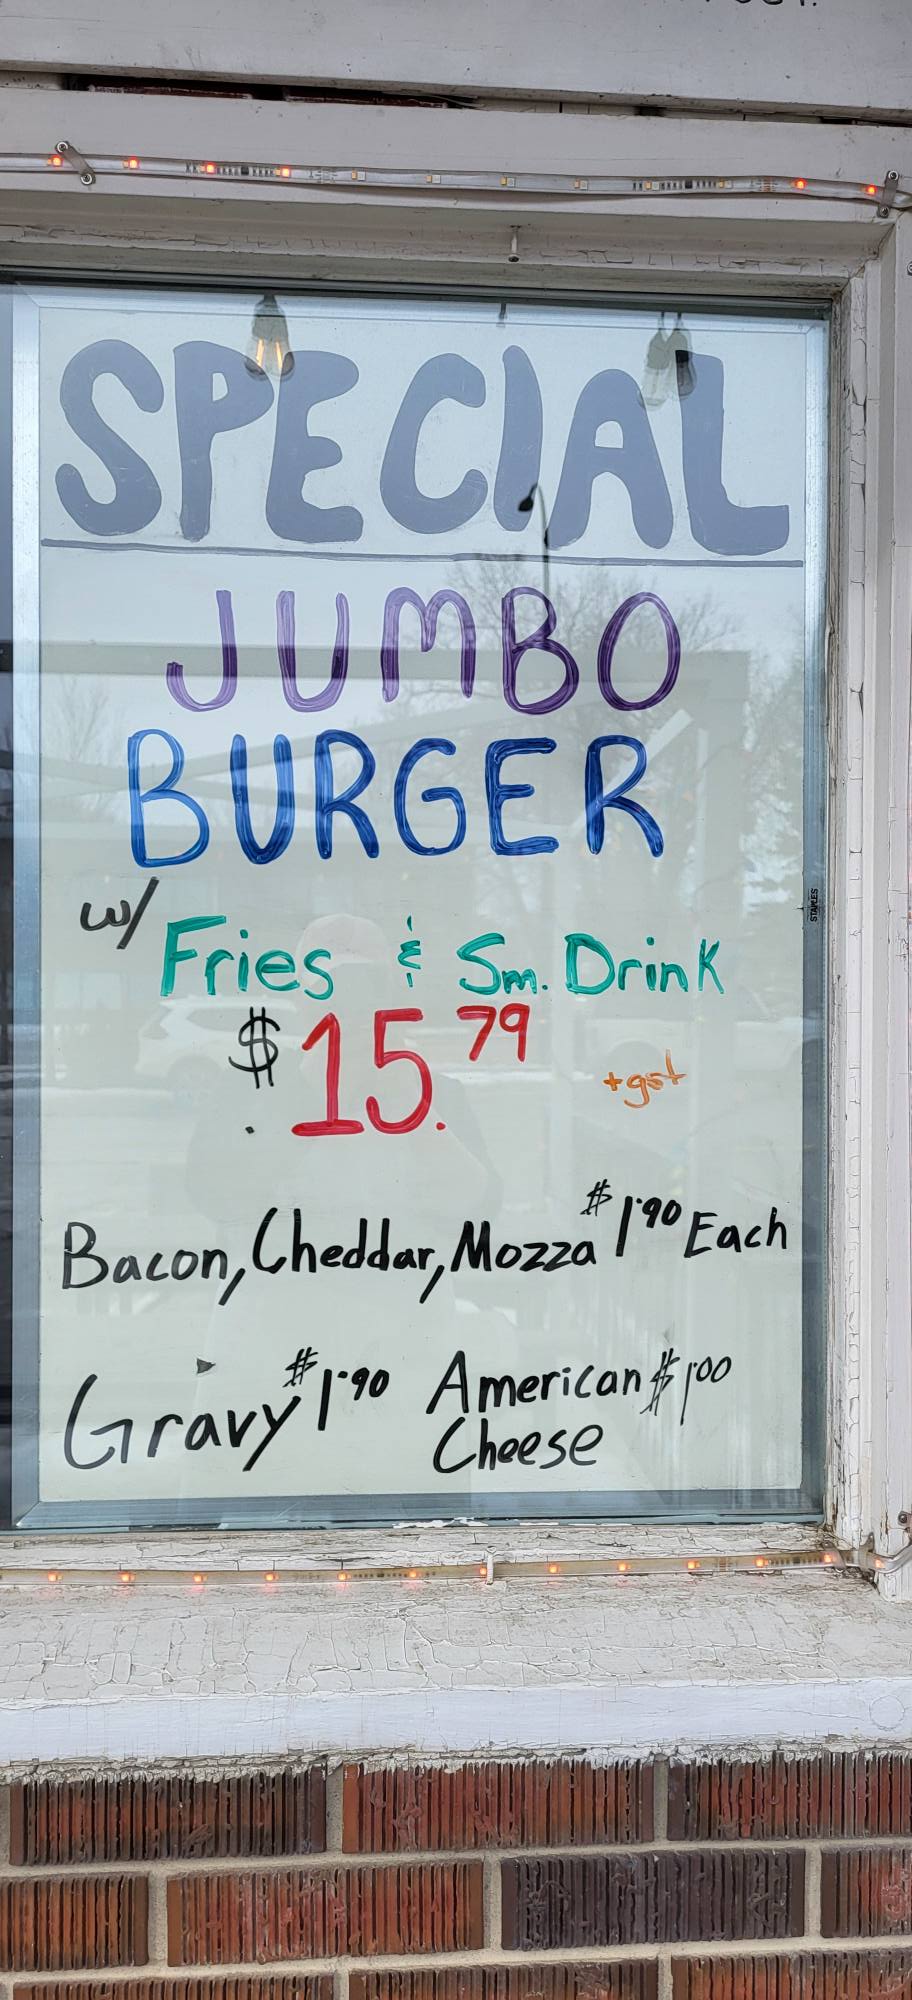 SPECIAL
JUMBO
BURGER
w/ Fries & Sm. Drink
$15.79 +gst
Bacon, Cheddar, Mozza $1.90 Each
Gravy $1.90 American $1.00
Cheese
STAPLES